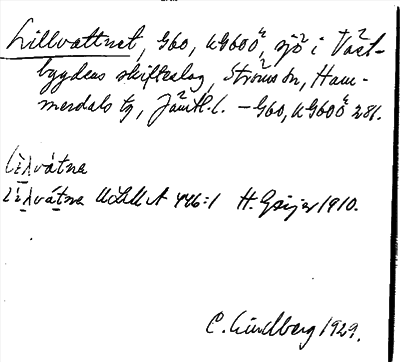 Lillvattnet, G60, kG60Ö, sjö i Väst-
bygdens skifteslag, Ströms sn, Ham-
merdals tg, Jämtl. l. – G60, kG60Ö 281.
Lìlvátna
Lìlvátna ULMA 446:1 H. Geijer 1910.
C. Lindberg 1929.